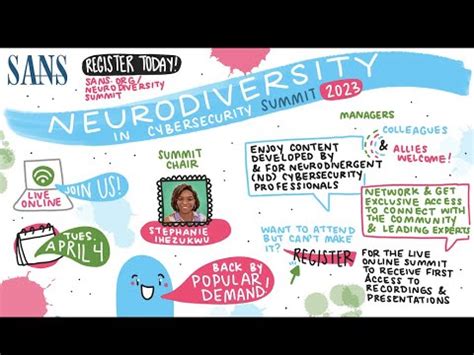 SANS
REGISTER TODAY!
SANS.ORG/
NEURODIVERSITY
SUMMIT
NEURODIVERSITY
IN CYBERSECURITY SUMMIT 2023
LIVE
ONLINE
JOIN US!
TUES.
APRIL 4
SUMMIT
CHAIR
STEPHANIE
IHEZUKWU
BACK BY
POPULAR
DEMAND!
MANAGERS
COLLEAGUES
& ALLIES
WELCOME!
ENJOY CONTENT
DEVELOPED BY
& FOR NEURODIVERGENT
(ND) CYBERSECURITY
PROFESSIONALS
NETWORK & GET
EXCLUSIVE ACCESS
TO CONNECT WITH
THE COMMUNITY
& LEADING EXPERTS
WANT TO ATTEND
BUT CAN'T MAKE
IT?
REGISTER
FOR THE LIVE
ONLINE SUMMIT
TO RECEIVE FIRST
ACCESS TO
RECORDINGS &
PRESENTATIONS